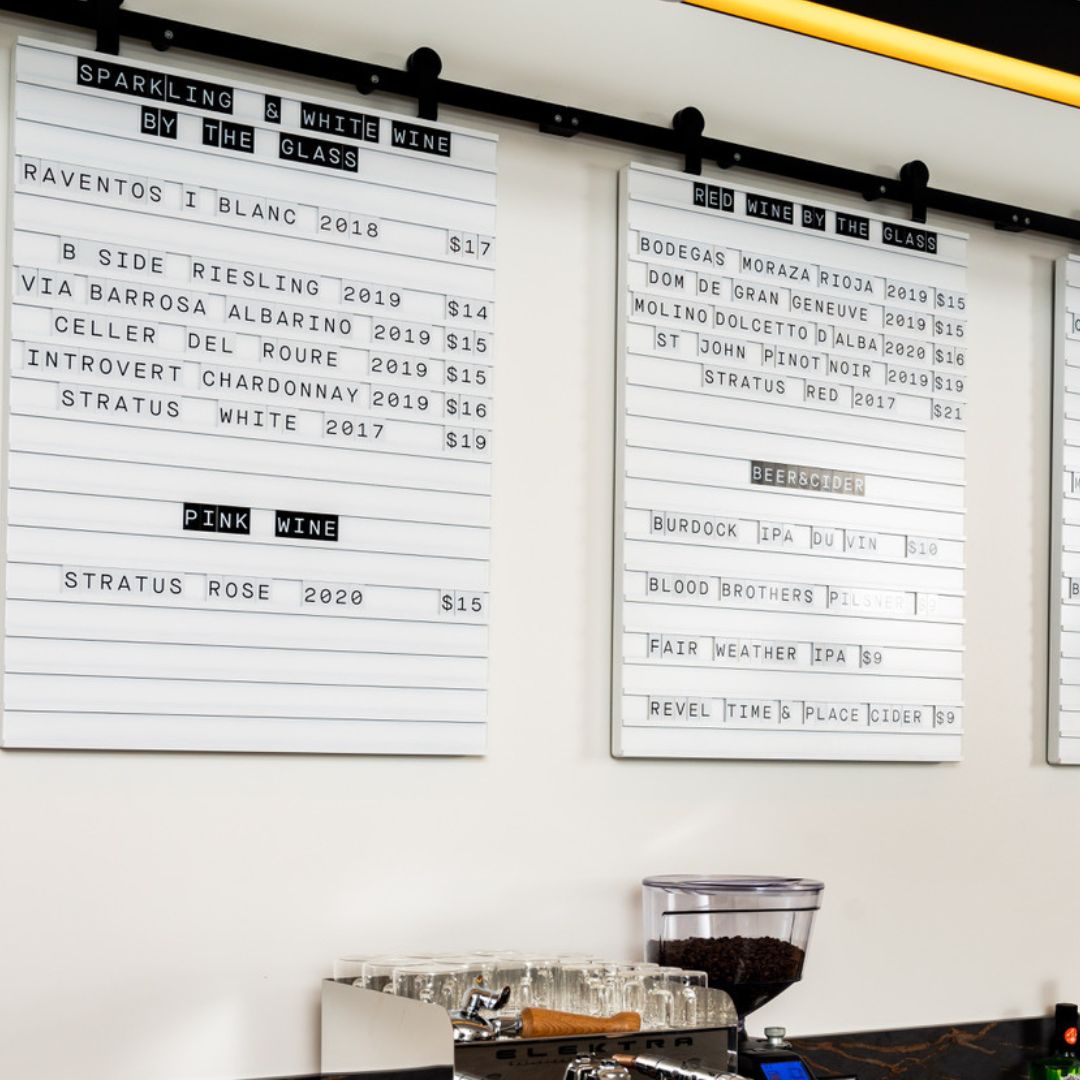 SPARKLING & WHITE WINE
BY THE GLASS
RAVENTOS I BLANC 2018 $17
B SIDE RIESLING 2019 $14
VIA BARROSA ALBARINO 2019 $15
CELLER DEL ROURE 2019 $15
INTROVERT CHARDONNAY 2019 $16
STRATUS WHITE 2017 $19
PINK WINE
STRATUS ROSE 2020 $15
RED WINE BY THE GLASS
BODEGAS MORAZA RIOJA 2019 $15
DOM DE GRAN GENEUVE 2019 $15
MOLINO DOLCETTO D ALBA 2020 $16
ST JOHN PINOT NOIR 2019 $19
STRATUS RED 2017 $21
BEER&CIDER
BURDOCK IPA DU VIN $10
BLOOD BROTHERS PILSNER $9
FAIR WEATHER IPA $9
REVEL TIME & PLACE CIDER $9
ELEKTRA